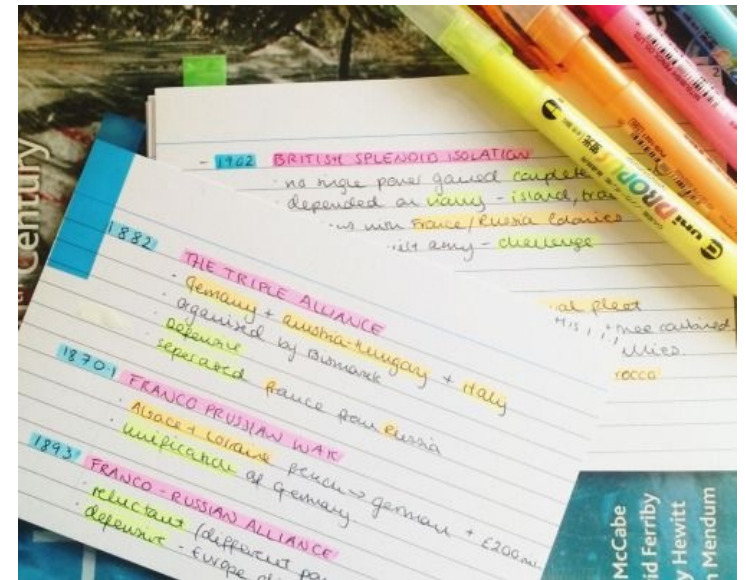 Century
- 1902 BRITISH SPLENDID ISOLATION
· no single power gained complete
· depended on navy - island, trade
France/Russia Colonies
army - challenge
fleet
combined
1882
THE TRIPLE ALLIANCE
· Germany + Austria-Hungary + Italy
· organised by Bismark
· Defensive
· seperated France from Russia
1870-1 FRANCO PRUSSIAN WAR
· Alsace + Lorraine french → german + £200m
· unification of Germany.
1893 FRANCO-RUSSIAN ALLIANCE
· reluctant (different
· defensive - Europe
uni PROPUS
McCabe
id Ferriby
y Hewitt
n Mendum